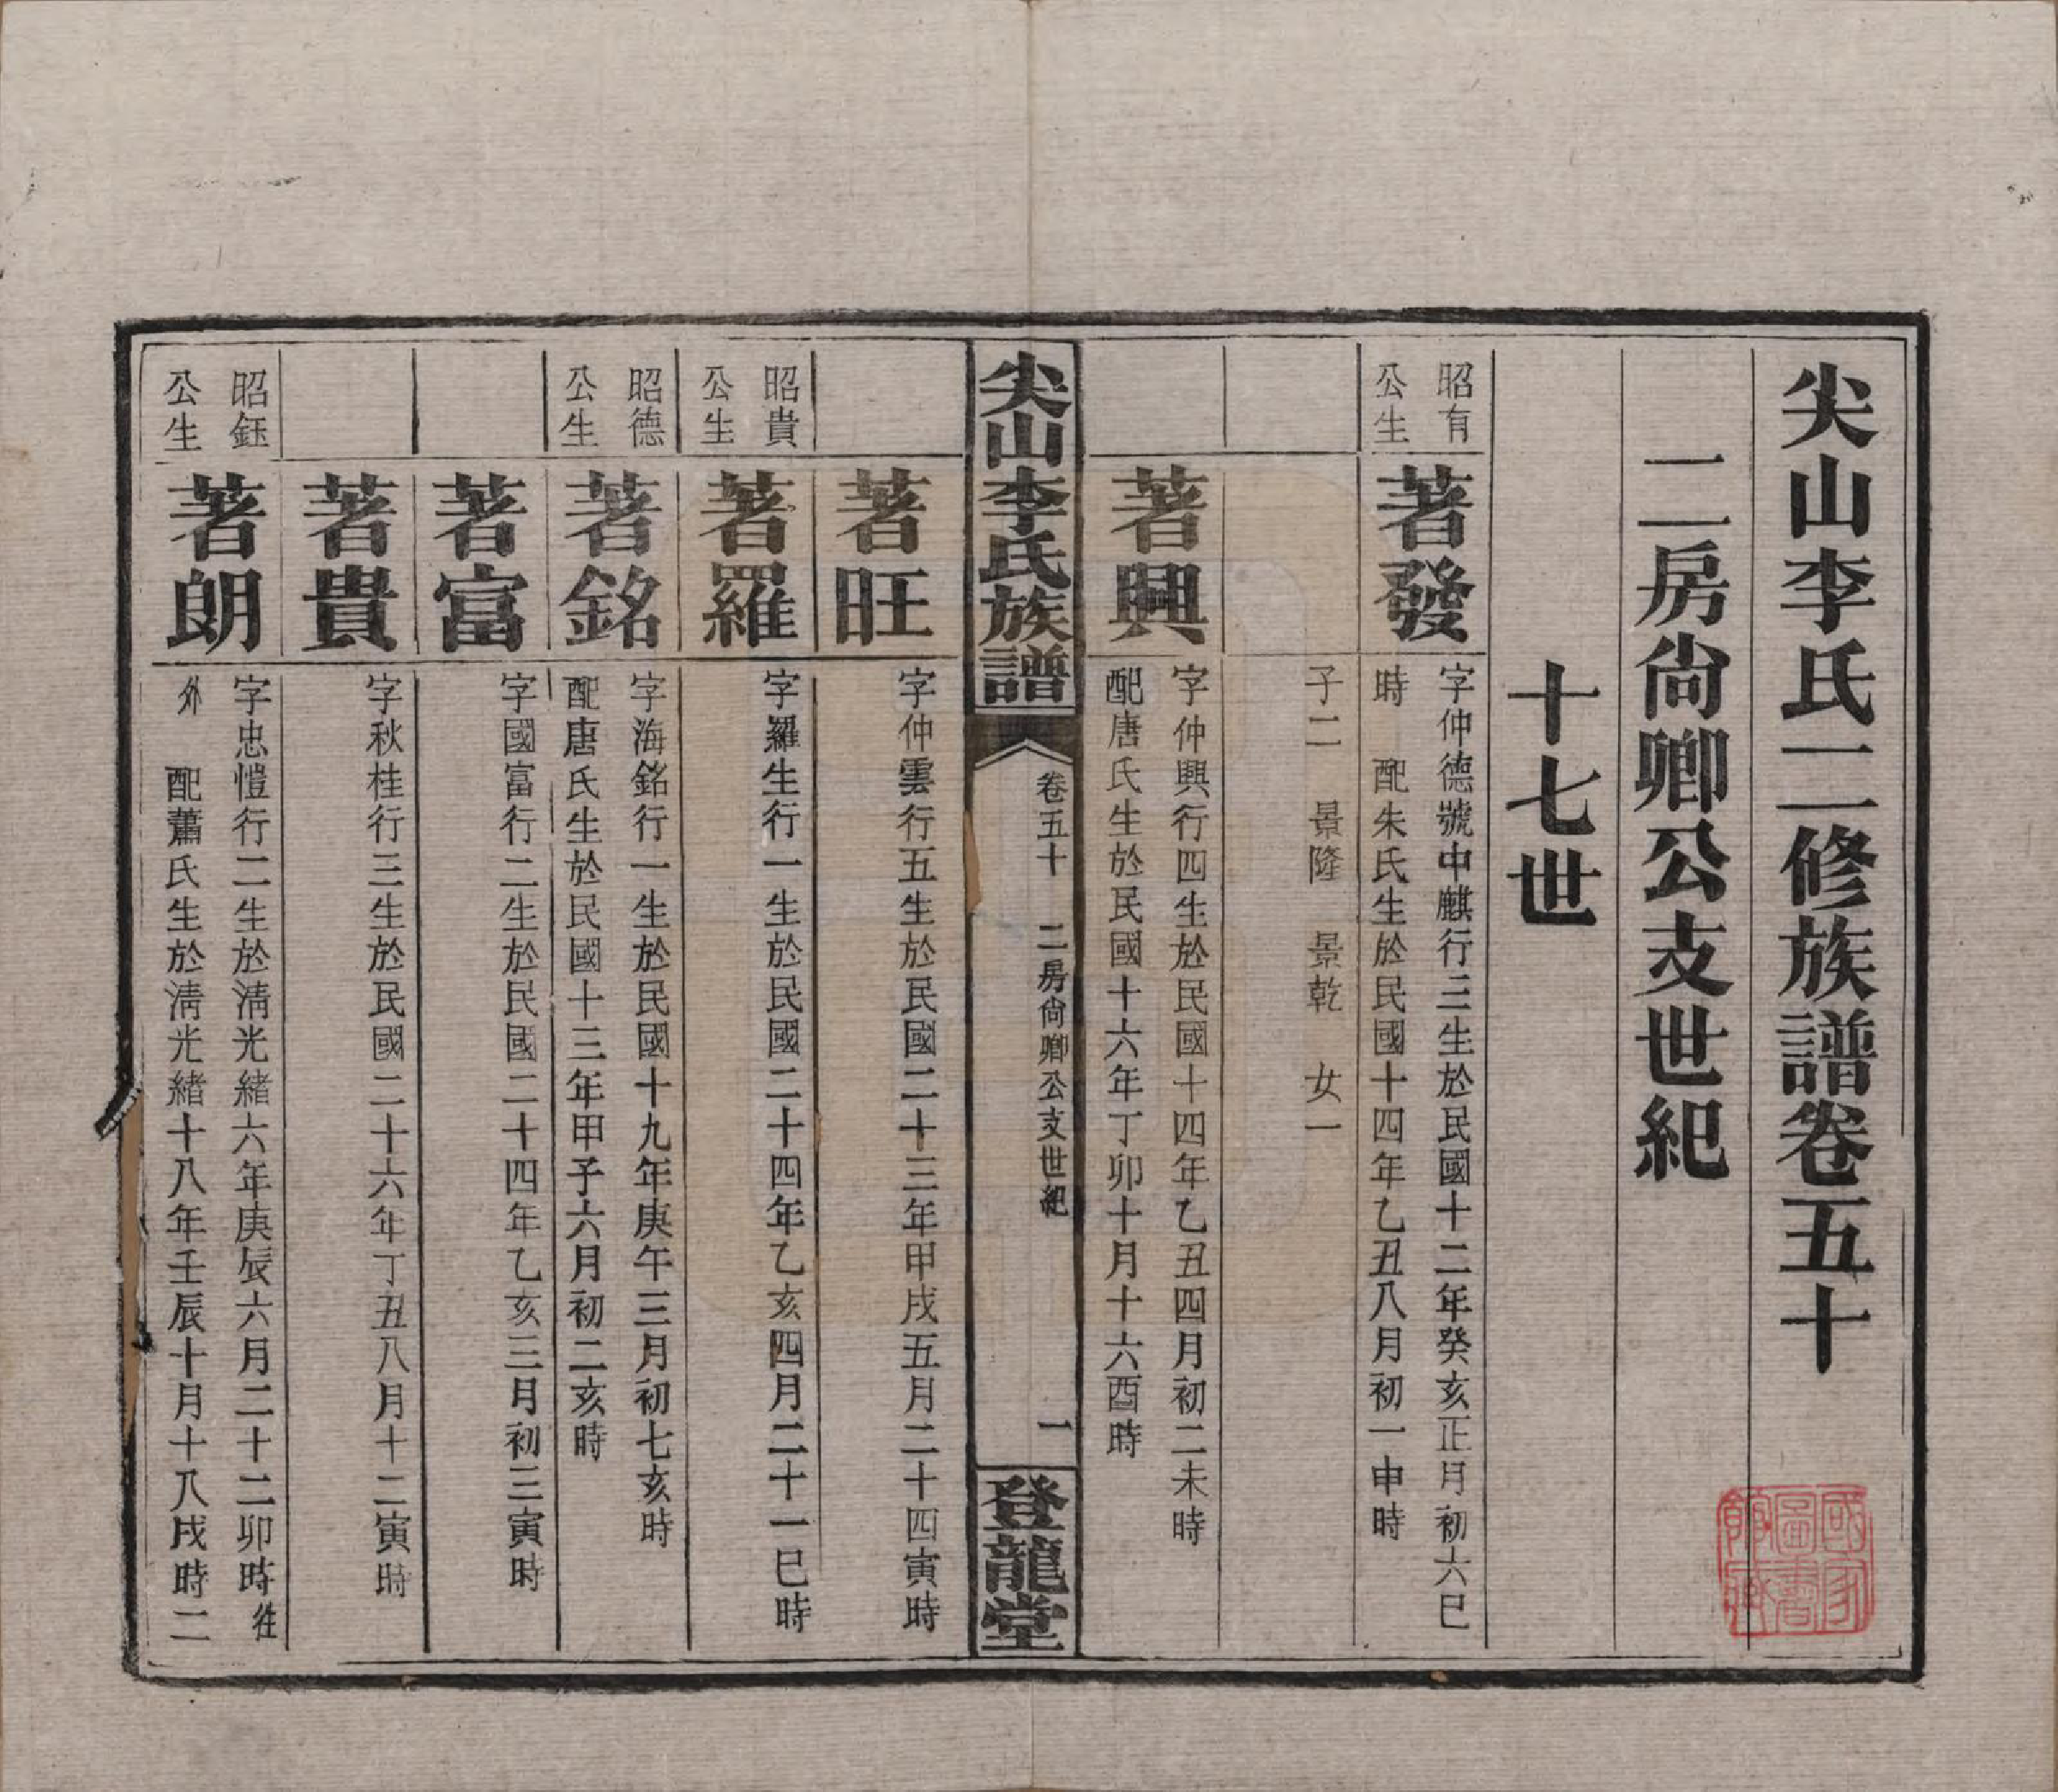 尖山李氏二修族譜卷五十
二房尙卿公支世紀
十七世
昭有
公生
著發
字仲德號中麒行三生於民國十二年癸亥正月初六巳
時 配朱氏生於民國十四年乙丑八月初一申時
子二 景隆 景乾 女一
著興
字仲興行四生於民國十四年乙丑四月初二未時
配唐氏生於民國十六年丁卯十月十六酉時
尖山李氏族譜
卷五十 二房尙卿公支世紀
一
登龍堂
著旺
字仲雲行五生於民國二十三年甲戌五月二十四寅時
昭貴
公生
著羅
字羅生行一生於民國二十四年乙亥四月二十一巳時
昭德
公生
著銘
字海銘行一生於民國十九年庚午三月初七亥時
配唐氏生於民國十三年甲子六月初二亥時
著富
字國富行二生於民國二十四年乙亥三月初三寅時
著貴
字秋桂行三生於民國二十六年丁丑八月十二寅時
昭鈺
公生
著朗
字忠愷行二生於清光緒六年庚辰六月二十二卯時往
外 配蕭氏生於清光緒十八年壬辰十月十八戌時二
國家
圖書
館藏